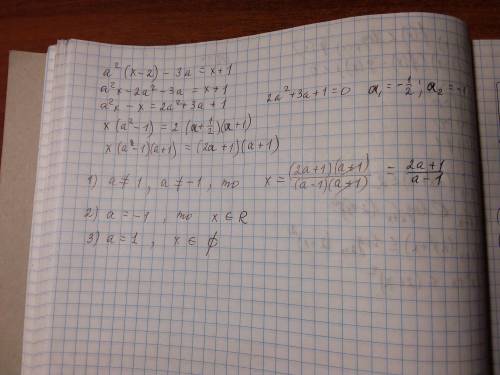 a² (x-2) - 3a = x+1
a²x - 2a² - 3a = x+1
a²x - x = 2a² + 3a + 1
2a² + 3a + 1 = 0 a₁ = -1/2 ; a₂ = -1
x (a² - 1) = 2 (a + 1/2)(a+1)
x (a² - 1)(a+1) = (2a+1)(a+1)
1) a ≠ 1, a ≠ -1, то x = (2a+1)(a+1)/(a-1)(a+1) = 2a+1/a-1
2) a = -1, то x ∈ R
3) a = 1, x ∈ ∅